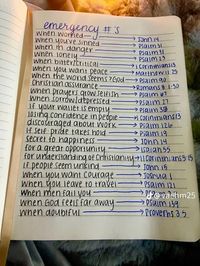 emergency #'s
when worried → John 14
when you've sinned → Psalm 51
when in danger → Psalm 91
when lonely → Psalm 23
when bitter/critical → 1 Corinthians 13
when you want peace → Matthew 11:25
when the world seems > God → Psalm 90
Christian assurance → Romans 8:1-30
when prayers grow selfish → Psalm 67
when sorrow/depressed → Psalm 27
if your wallet is empty → Psalm 37
losing confidence in people → 1 Corinthians 13
discouraged about work → Psalm 126
if self pride takes hold → Psalm 19
secret to happiness → John 14
for a great opportunity → Isaiah 55
for understanding of Christianity → 11 Corinthians 5:15
if people seem unkind → John 15
when you want courage → Joshua 1
when you leave to travel → Psalm 121
when men fail you →
when God feels far away → Psalm 139
when doubtful → Proverbs 3:5